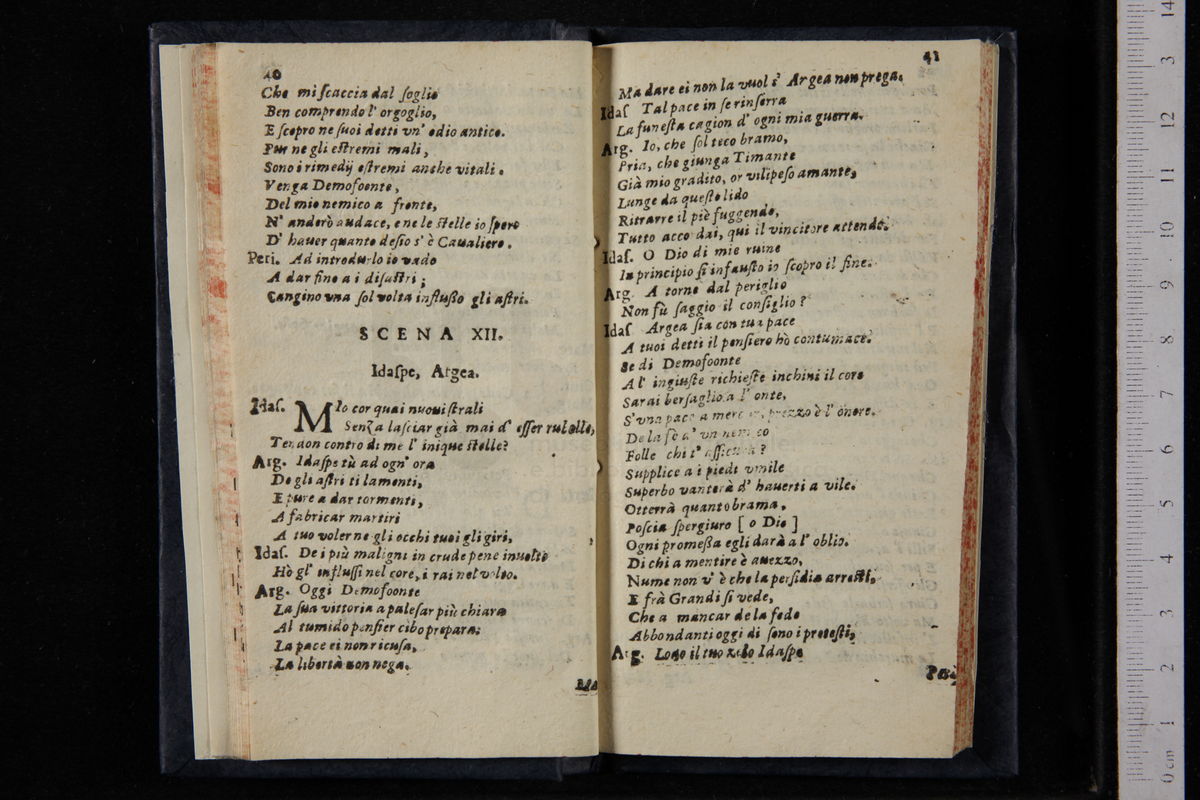 40
Che mi ſcaccia dal ſoglio
Ben comprendo l' orgoglio,
E ſcopro ne ſuoi detti vn' odio antico.
Pur ne gli eſtremi mali,
Sono i rimedij eſtremi anche vitali.
Venga Demofoonte,
Del mio nemico a fronte,
N' anderò audace, e ne le ſtelle io ſpero
D' hauer quanto deſio s' è Caualiero.
Peri. Ad introdurlo io vado
A dar fine a i diſaſtri;
Cangino vna ſol volta influßo gli aſtri.
SCENA XII.
Idaſpe, Argea.
Idaſ. MIo cor quai nuoui ſtrali
Senza laſciar già mai d' eſſer rubelle,
Tendon contro di me l' inique ſtelle?
Arg. Idaſpe tù ad ogn' ora
De gli aſtri ti lamenti,
E pure a dar tormenti,
A fabricar martiri
A tuo voler ne gli occhi tuoi gli giri,
Idaſ. De i più maligni in crude pene inuolto
Hò gl' influſſi nel core, i rai nel volto.
Arg. Oggi Demofoonte
La ſua vittoria a paleſar più chiara
Al tumido penſier cibo prepara;
La pace ei non ricuſa,
La libertà non nega.
Ma
41
Ma dare ei non la vuol s' Argea non prega.
Idaſ Tal pace in ſe rinſerra
La funeſta cagion d' ogni mia guerra.
Arg. Io, che ſol teco bramo,
Pria, che giunga Timante
Già mio gradito, or vilipeſo amante,
Lunge da queſto lido
Ritrarre il piè fuggendo,
Tutto acco dai, qui il vincitore attendo.
Idaſ. O Dio di mie ruine
In principio ſì infauſto io ſcopro il fine.
Arg. A torne dal periglio
Non fù ſaggio il conſiglio?
Idaſ Argea ſia con tua pace
A tuoi detti il penſiero hò contumace.
Se di Demofoonte
A l' ingiuſte richieſte inchini il core
Sarai berſaglio a l' onte,
S' vna pace a merc prezzo è l' onore.
De la fè d' vn nemico
Folle chi t' aſſicura?
Supplice a i piedi vmile
Superbo vanterà d' hauerti a vile.
Otterrà quanto brama,
Poſcia ſpergiuro [o Dio]
Ogni promeßa egli darà a l' oblio.
Di chi a mentire è auezzo,
Nume non v' è che la perfidia arreſti,
E frà Grandi ſi vede,
Che a mancar de la fede
Abbondanti oggi dì ſono i preteſti,
Arg. Lodo il tuo zelo Idaſpe
Però